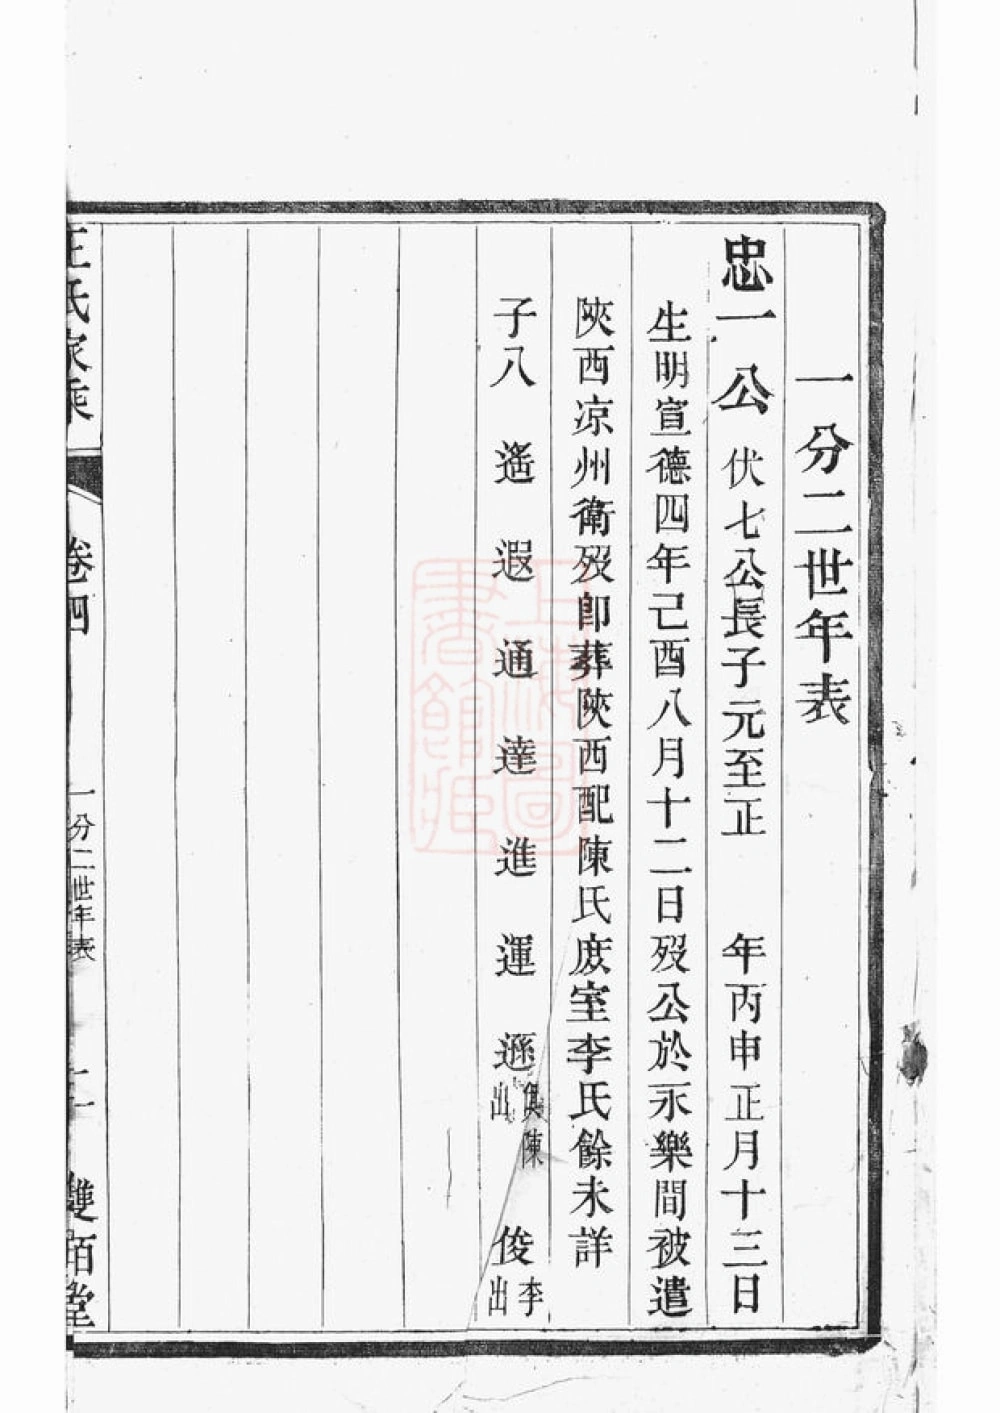 一分二世年表
忠一公 伏七公長子元至正 年丙申正月十三日
生明宣德四年己酉八月十二日歿公於永樂間被遣
陝西凉州衛歿卽葬陝西配陳氏庶室李氏餘未詳
子八 遙 遐 通 達 進 運 遜 俱陳出 俊 李出
王氏家乘 卷四 一分二世年表 二 雙栢堂
上海圖書館藏